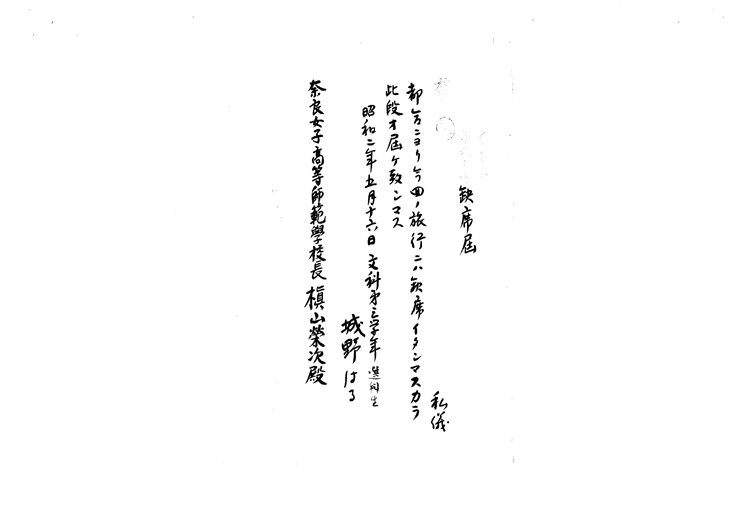 缺席届
私儀
都合ニヨリ今回ノ旅行ニハ缺席イタシマスカラ
此段オ届ケ致シマス
昭和二年五月十六日 文科第三学年 選科生
城野はる
奈良女子高等師範學校長 槇山榮次殿